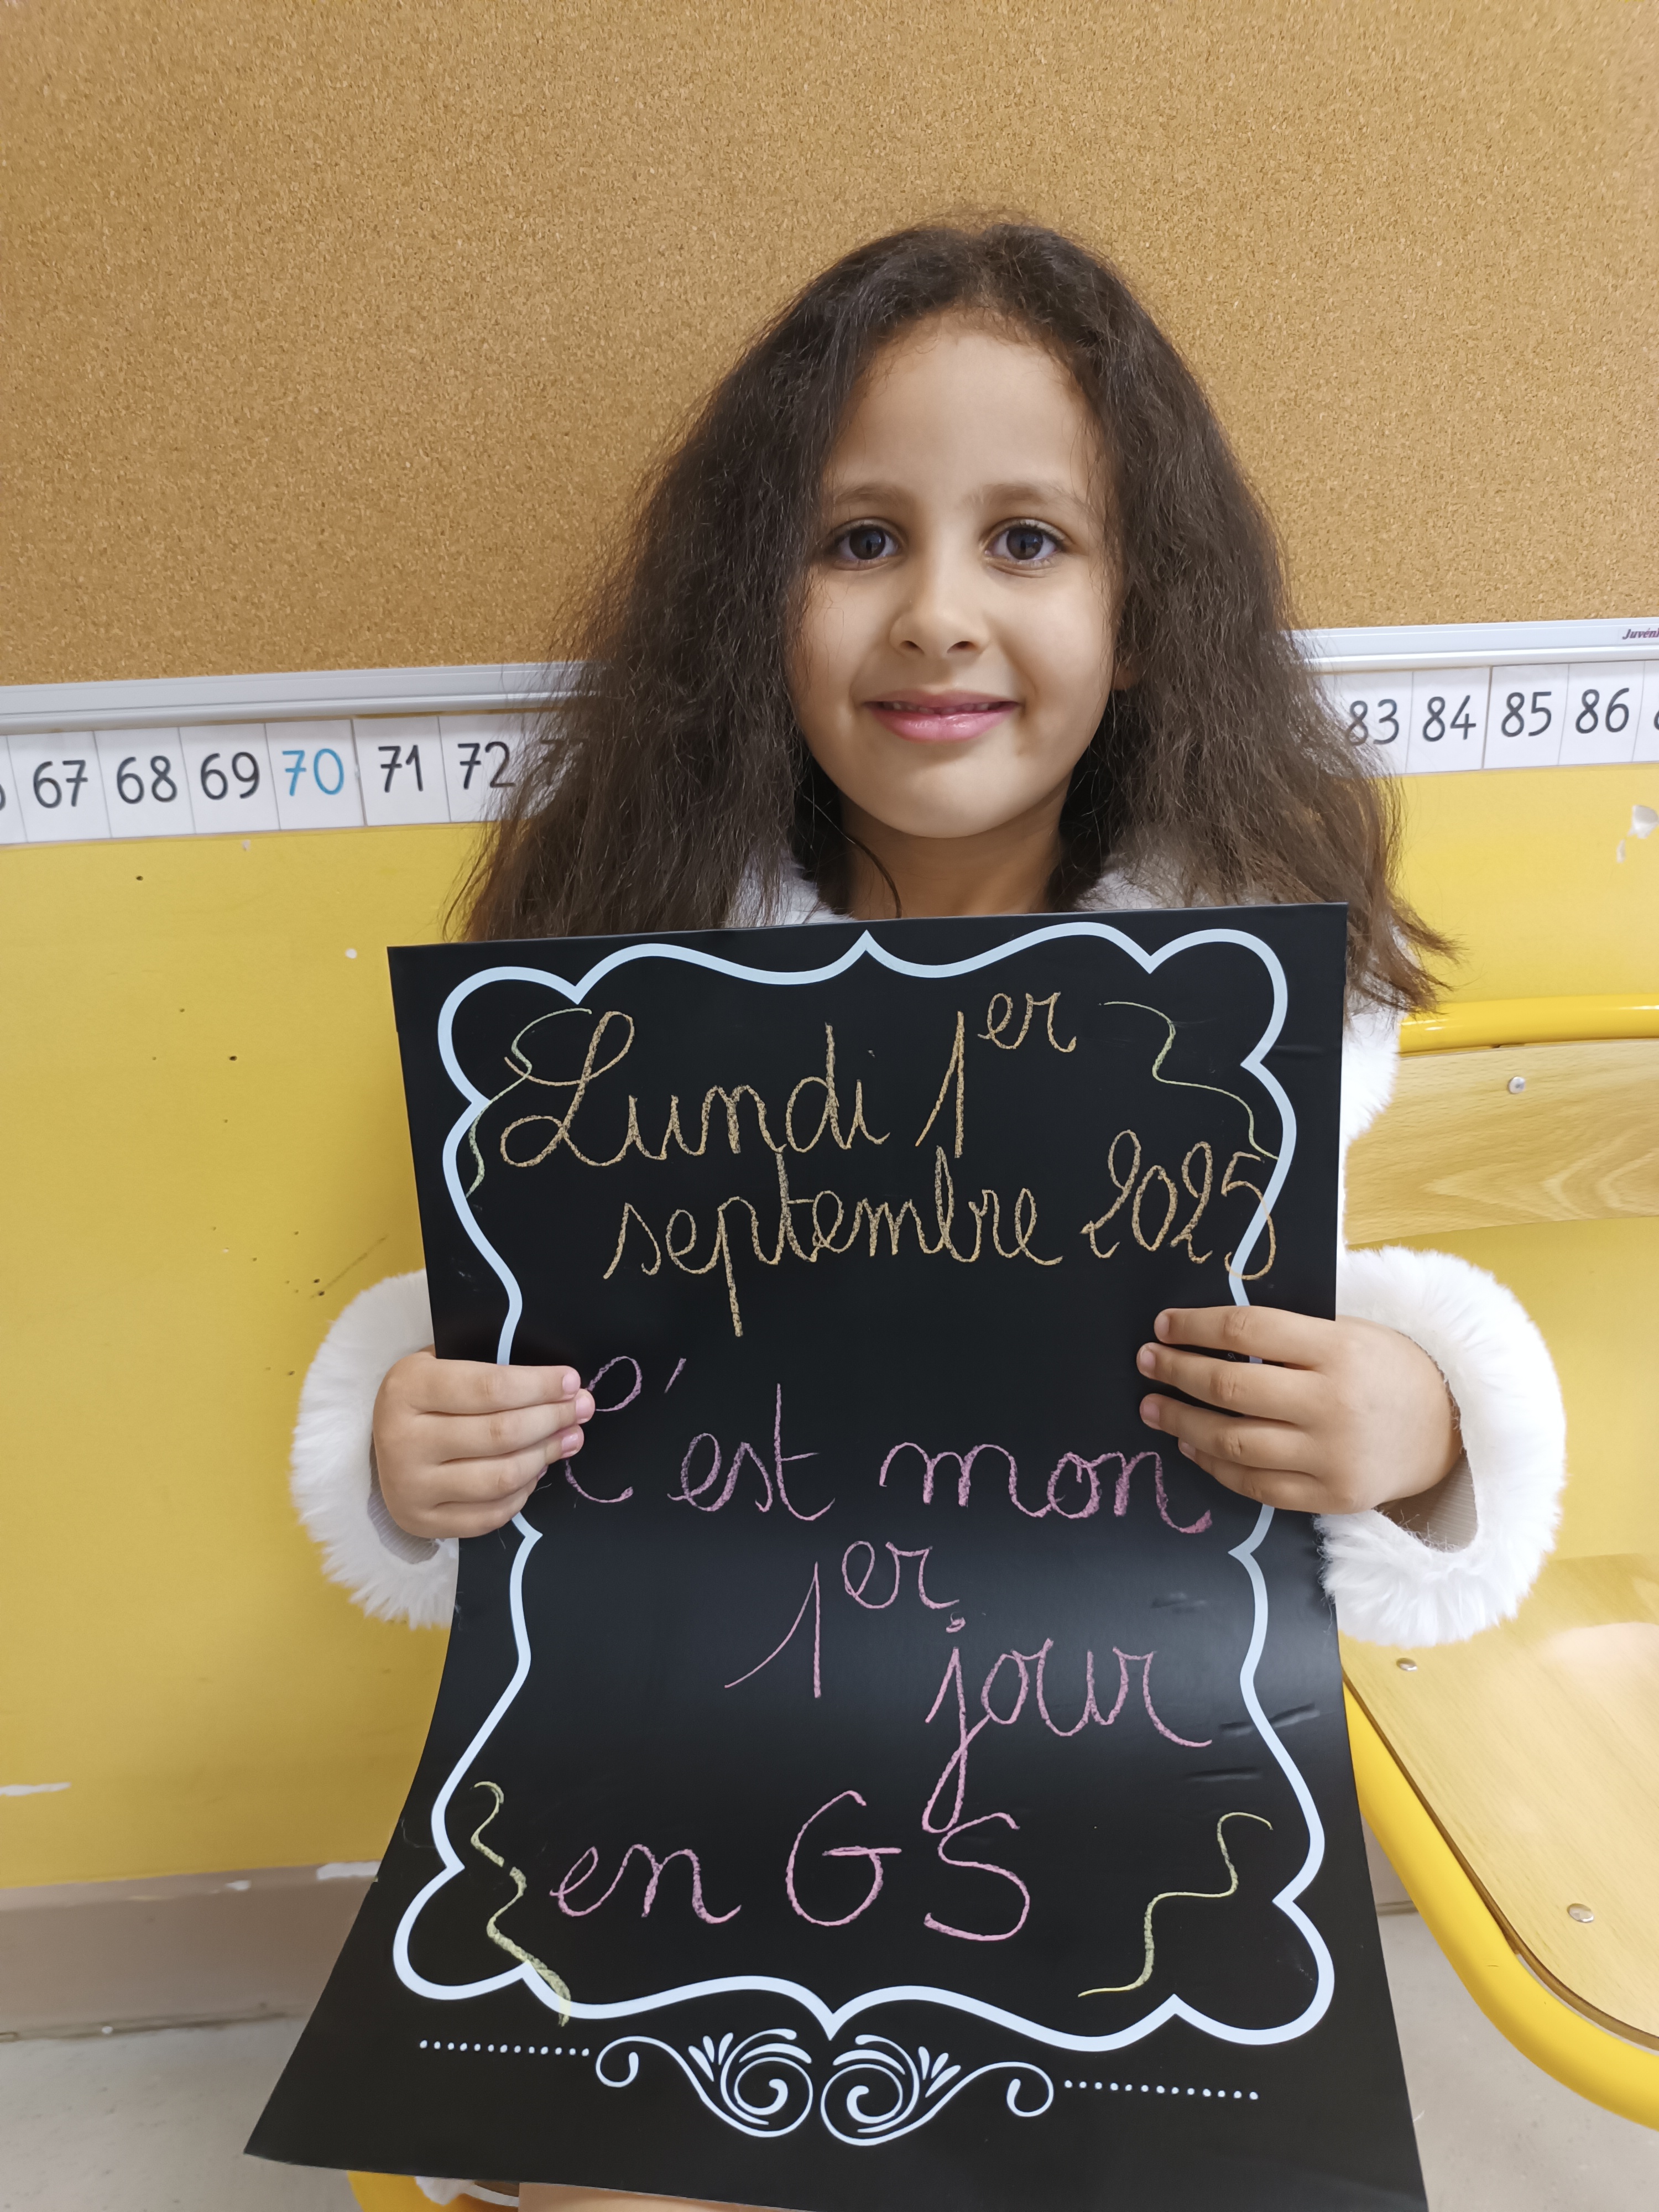 Juvén
67 68 69 70 71 72
83 84 85 86
Lundi 1er
septembre 2025
C'est mon
1er
jour
en GS